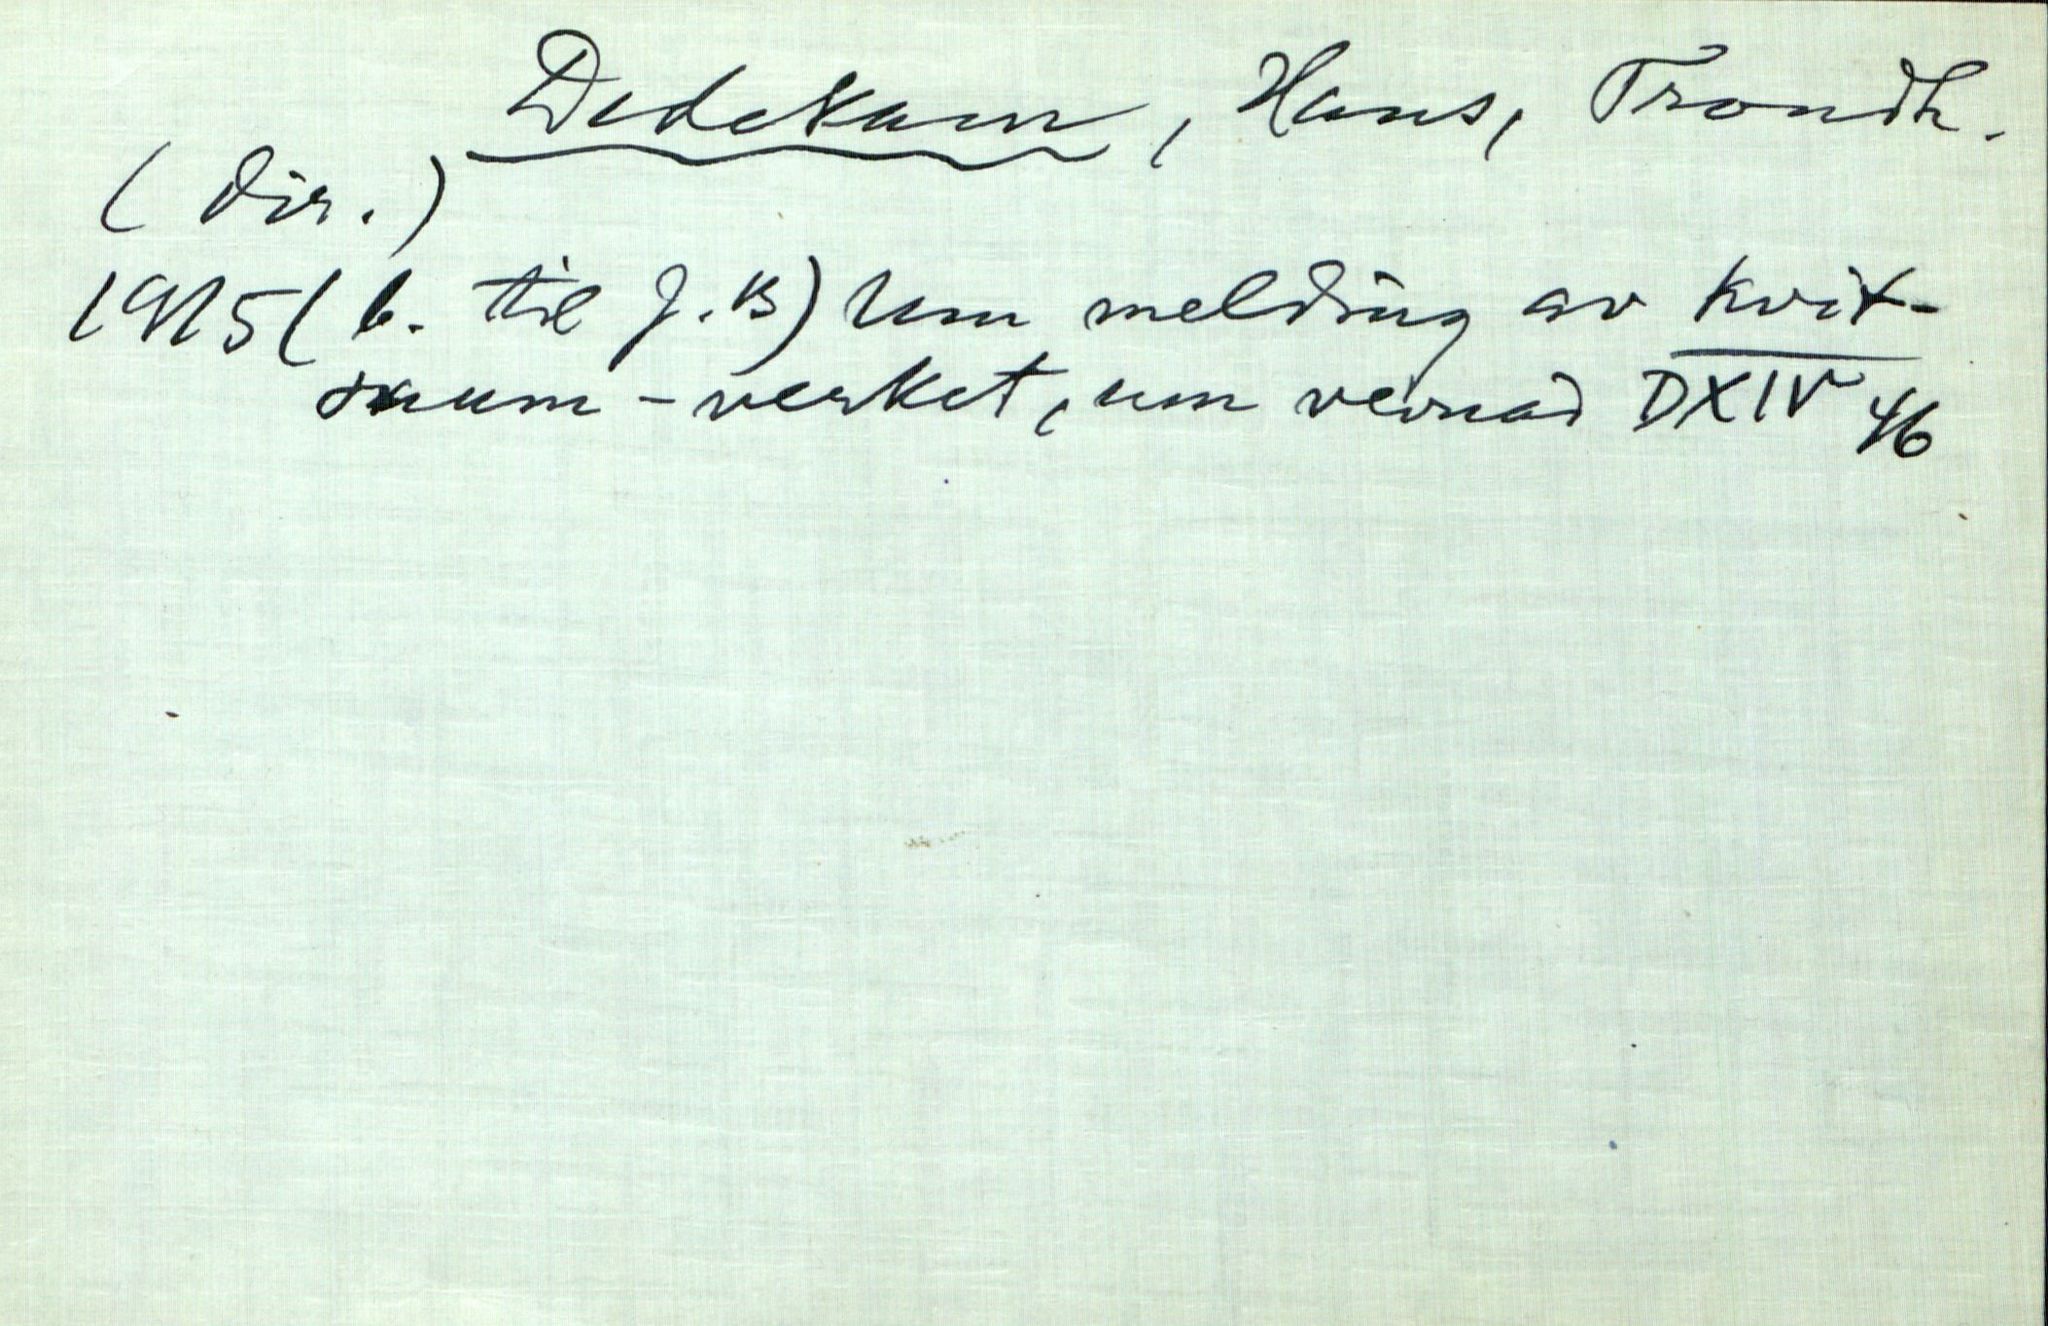 Dedekam, Hans, Trondh.
(dir.)
1915 (b. til J.B) Um melding av Kvit-
saum-verket, um vevnad DXIV 46